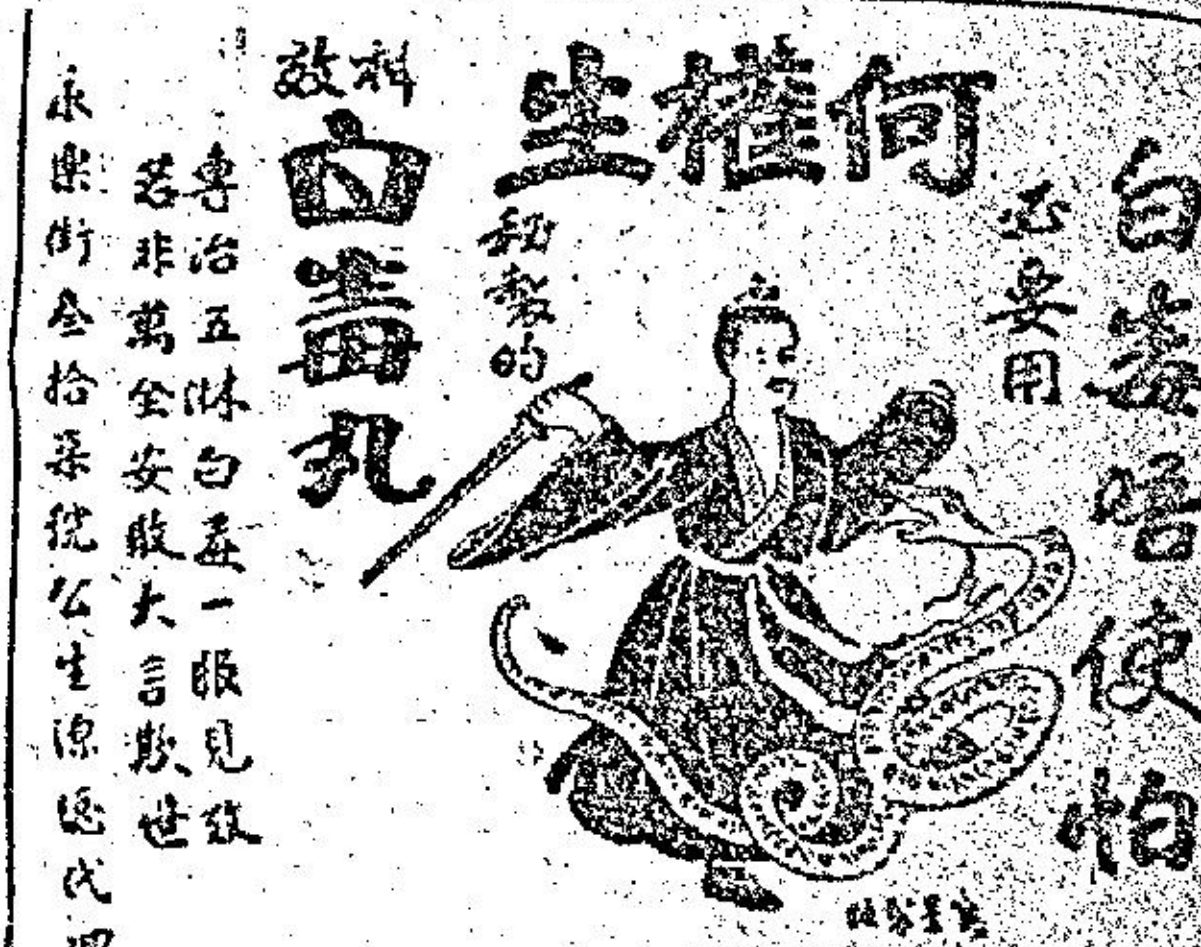 白毒唔使怕
必要用
何權生
秘製的
科效
白毒丸
專治五淋白毒一服見效
若非萬全安敢大言欺世
永樂街叁拾號公生源總代理